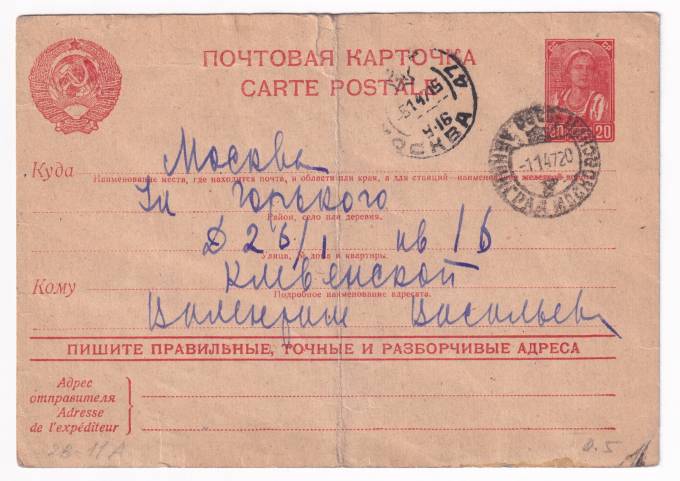 ПОЧТОВАЯ КАРТОЧКА
CARTE POSTALE
20 20
МОСКВА
47
-1.1.47.20
Куда Москва
Наименование места, где находится почта, и области или края, а для станций—наименование железной дороги
Ул Горького
Район, село или деревня.
Д 26/1 кв 16
Улица, № дома и квартиры.
Кому Клевенской
Подробное наименование адресата.
Валентине Васильевн
ПИШИТЕ ПРАВИЛЬНЫЕ, ТОЧНЫЕ И РАЗБОРЧИВЫЕ АДРЕСА
Адрес
отправителя
Adresse
de l'expéditeur
28-11А